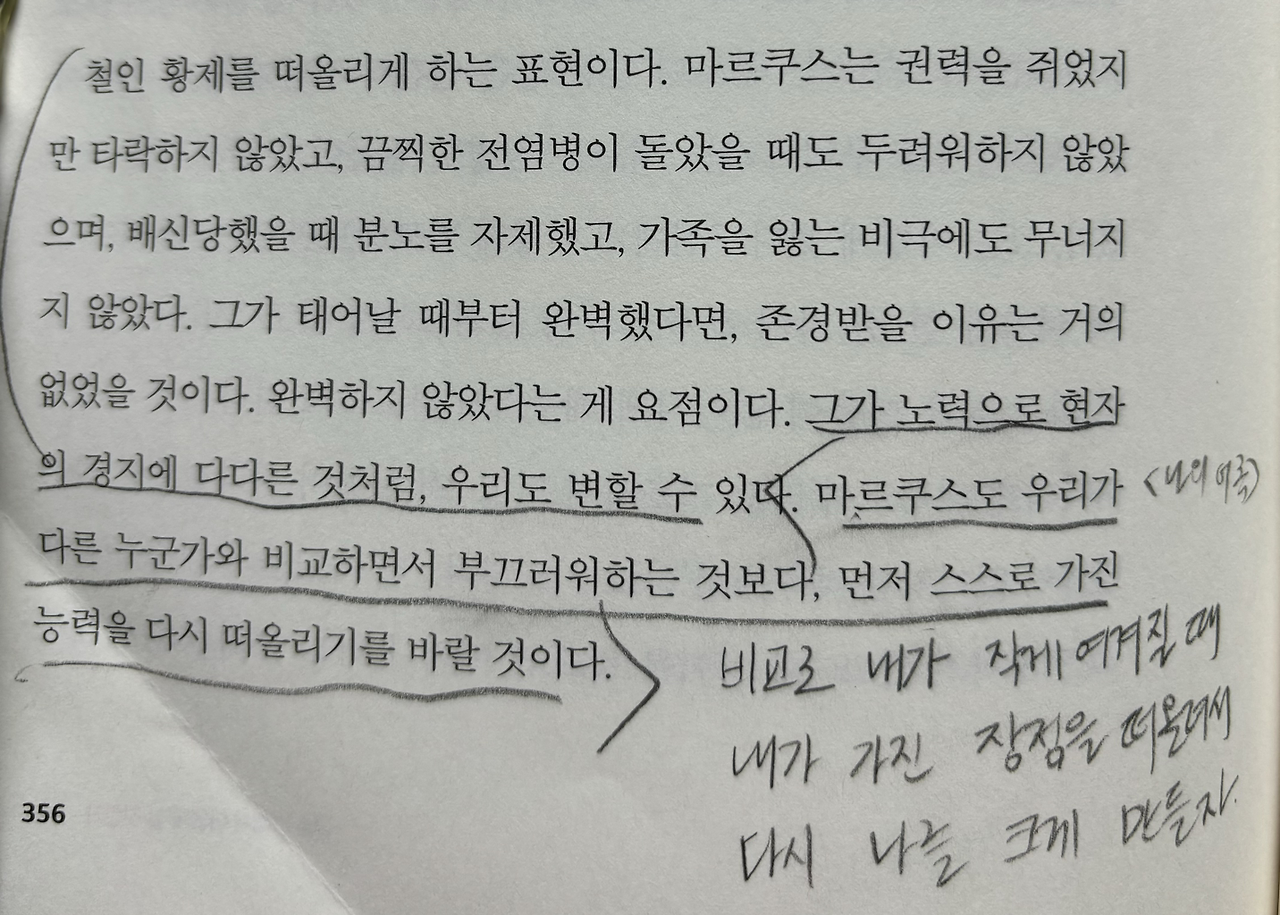 철인 황제를 떠올리게 하는 표현이다. 마르쿠스는 권력을 쥐었지
만 타락하지 않았고, 끔찍한 전염병이 돌았을 때도 두려워하지 않았
으며, 배신당했을 때 분노를 자제했고, 가족을 잃는 비극에도 무너지
지 않았다. 그가 태어날 때부터 완벽했다면, 존경받을 이유는 거의
없었을 것이다. 완벽하지 않았다는 게 요점이다. 그가 노력으로 현자
의 경지에 다다른 것처럼, 우리도 변할 수 있다. 마르쿠스도 우리가
다른 누군가와 비교하면서 부끄러워하는 것보다, 먼저 스스로 가진
능력을 다시 떠올리기를 바랄 것이다.
비교로 내가 작게 여겨질 때
내가 가진 장점을 떠올려서
다시 나를 크게 만들자.
356